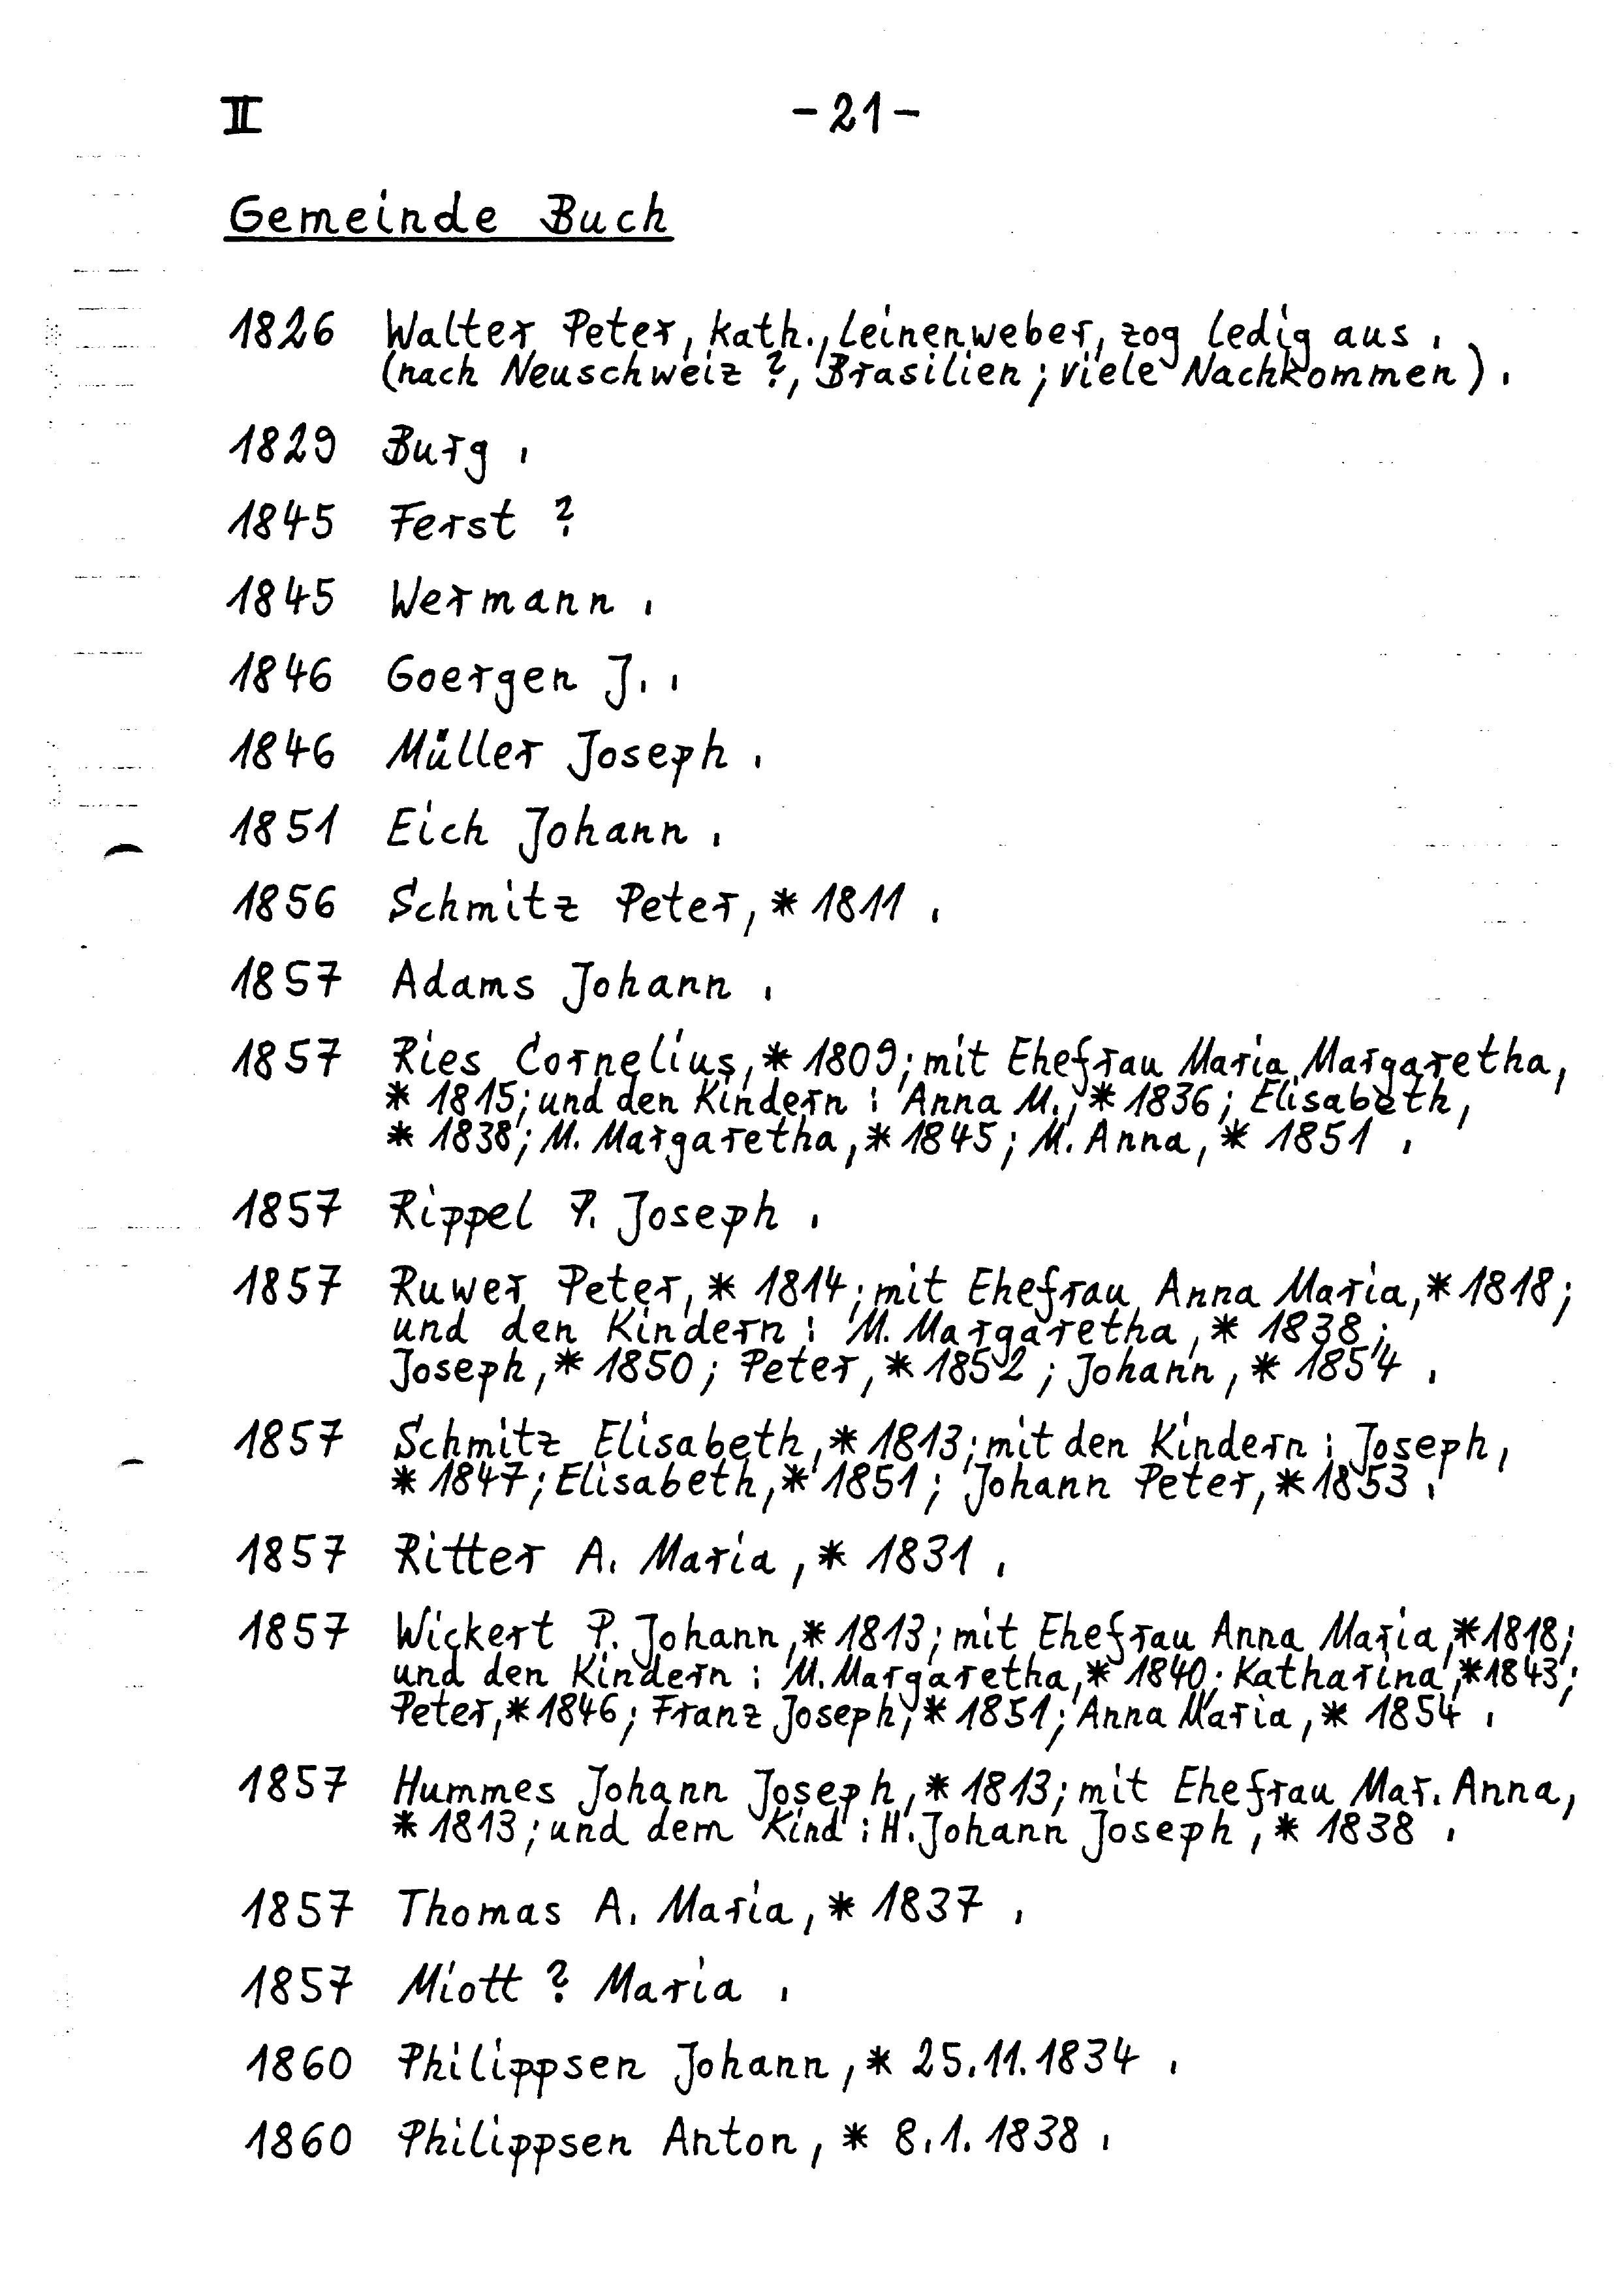 II -21-
Gemeinde Buch
1826 Walter Peter, kath., Leinenweber, zog ledig aus.
(nach Neuschweiz ?, Brasilien; viele Nachkommen).
1829 Burg.
1845 Ferst ?
1845 Wermann.
1846 Goergen J..
1846 Müller Joseph.
1851 Eich Johann.
1856 Schmitz Peter, * 1811.
1857 Adams Johann.
1857 Ries Cornelius, * 1809; mit Ehefrau Maria Margaretha,
* 1815; und den Kindern: Anna M., * 1836; Elisabeth,
* 1838; M. Margaretha, * 1845; M. Anna, * 1851.
1857 Rippel P. Joseph.
1857 Ruwer Peter, * 1814; mit Ehefrau Anna Maria, * 1818;
und den Kindern: M. Margaretha, * 1838;
Joseph, * 1850; Peter, * 1852; Johann, * 1854.
1857 Schmitz Elisabeth, * 1813; mit den Kindern: Joseph,
* 1847; Elisabeth, * 1851; Johann Peter, * 1853.
1857 Ritter A. Maria, * 1831.
1857 Wickert P. Johann, * 1813; mit Ehefrau Anna Maria, * 1818;
und den Kindern: M. Margaretha, * 1840; Katharina, * 1843;
Peter, * 1846; Franz Joseph, * 1851; Anna Maria, * 1854.
1857 Hummes Johann Joseph, * 1813; mit Ehefrau Mar. Anna,
* 1813; und dem Kind: H. Johann Joseph, * 1838.
1857 Thomas A. Maria, * 1837.
1857 Miott ? Maria.
1860 Philippsen Johann, * 25.11.1834.
1860 Philippsen Anton, * 8.1.1838.